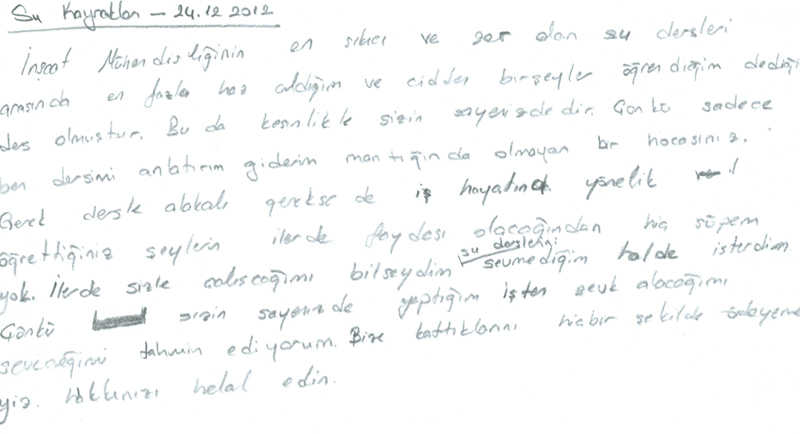 Su Kaynakları – 24.12.2012
İnşaat Mühendisliğinin en sıkıcı ve zor olan su dersleri
arasında en fazla haz aldığım ve cidden birşeyler öğrendiğim dediğim
ders olmuştur. Bu da kesinlikle sizin sayenizdedir. Çünkü sadece
ben dersimi anlatırım giderim mantığında olmayan bir hocasınız.
Gerek dersle alakalı gerekse de iş hayatına yönelik
öğrettiğiniz şeylerin ilerde faydası olacağından hiç şüphem
yok. İlerde sizle çalışcağımı bilseydim su derslerini sevmediğim halde isterdim
Çünkü sizin sayenizde yaptığım işten zevk alacağımı
seveceğimi tahmin ediyorum. Bize kattıklarını hiçbir şekilde ödeyeme
yiz. Hakkınızı helal edin.